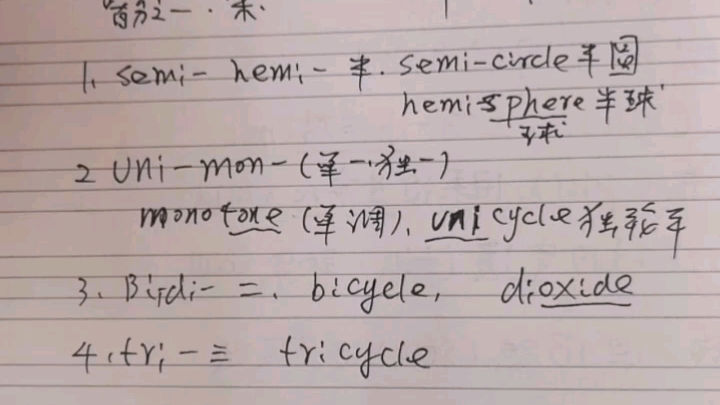 百分之一.米.
1. semi- hemi- 半. semi-circle 半圆
hemisphere 半球
球
2 uni-mon-(单一.独一)
monotone (单调)、unicycle 独轮车
3. Bi, di- 二. bicycle, dioxide
4. tri- 三 tricycle